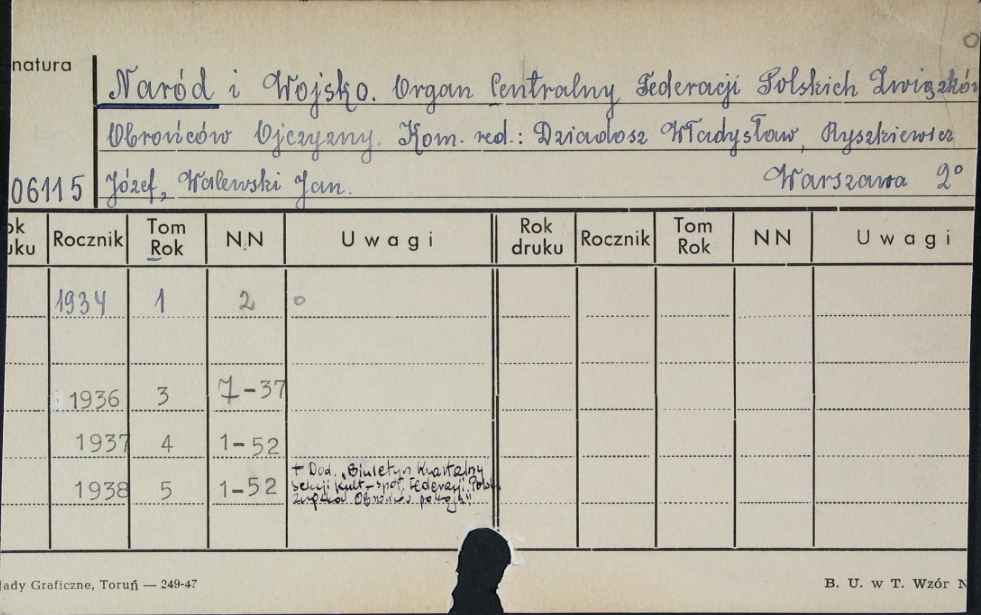 natura
Naród i Wojsko. Organ Centralny Federacji Polskich Związków
Obrońców Ojczyzny. Kom. red.: Dziadosz Władysław, Ryszkiewicz
06115 Józef, Walewski Jan. Warszawa 2°
ok uku Rocznik Tom Rok NN Uwagi Rok druku Rocznik Tom Rok NN Uwagi
1934 1 2 o
1936 3 7-37
1937 4 1-52
1938 5 1-52 + Dod. „Biuletyn Kwartalny
sekcji kult-społ. Federacji Polsk.
Obrońców
łady Graficzne, Toruń — 249-47 B. U. w T. Wzór N